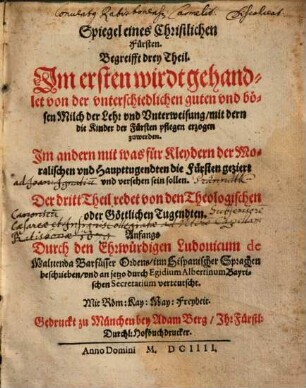 Conventus Ratisbonensis Carmelit. Discalceat.
Spiegel eines Christlichen
Fürsten.
Begreifft drey Theil.
Im ersten würdt gehand-
let von der vnterschiedlichen guten vnd bö-
sen Milch der Lehr vnd Vnterweisung / mit dern
die Kinder der Fürsten pflegen erzogen
zuwerden.
Im andern mit was für Kleydern der Mo-
ralischen vnd Haupttugendten die Fürsten geziert
vnd versehen sein sollen.
Der dritt Theil redet von den Theologischen
oder Göttlichen Tugendten.
Anfangs
Durch den Ehrwürdigen Ludouicum de
Maluenda Barfüsser Ordens / inn Hispanischer Sprachen
beschrieben / vnd an jetzo durch Egidium Albertinum Bayri-
schen Secretarium verteutscht.
Mit Röm: Kay: May: Freyheit.
Gedruckt zu München bey Adam Berg / Ih: Fürstl:
Durchl: Hofbuchdrucker.
Anno Domini M. DCIIII.